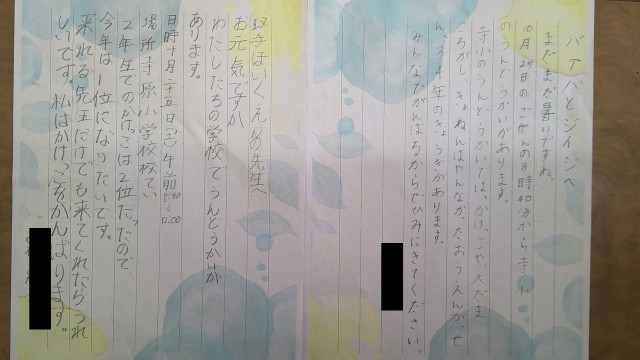 バアバとジイジへ
まだまだ暑いですね。
10月25日のごぜんの8時40分から寺小
のうんどうかいがあります。
寺小のうんどうかいでは、かけっこや、大だま
ころがし、きょねんはやんなかったおうえんがっせ
ん、3、4年のきょうぎがあります。
みんながんばるからぜひみにきてください。
ほいくえんの先生へ
お元気ですか
わたしたちの学校でうんどうかいが
あります。
日時十月二十五日(土)午前8:40〜12:00
場所寺原小学校校てい
2年生でのかけっこは2位だったので
今年は1位になりたいです。
来れる先生だけでも来てくれたらうれ
しいです。私はかけっこをがんばります。